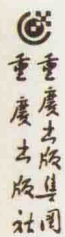 重慶出版集团
重慶出版社